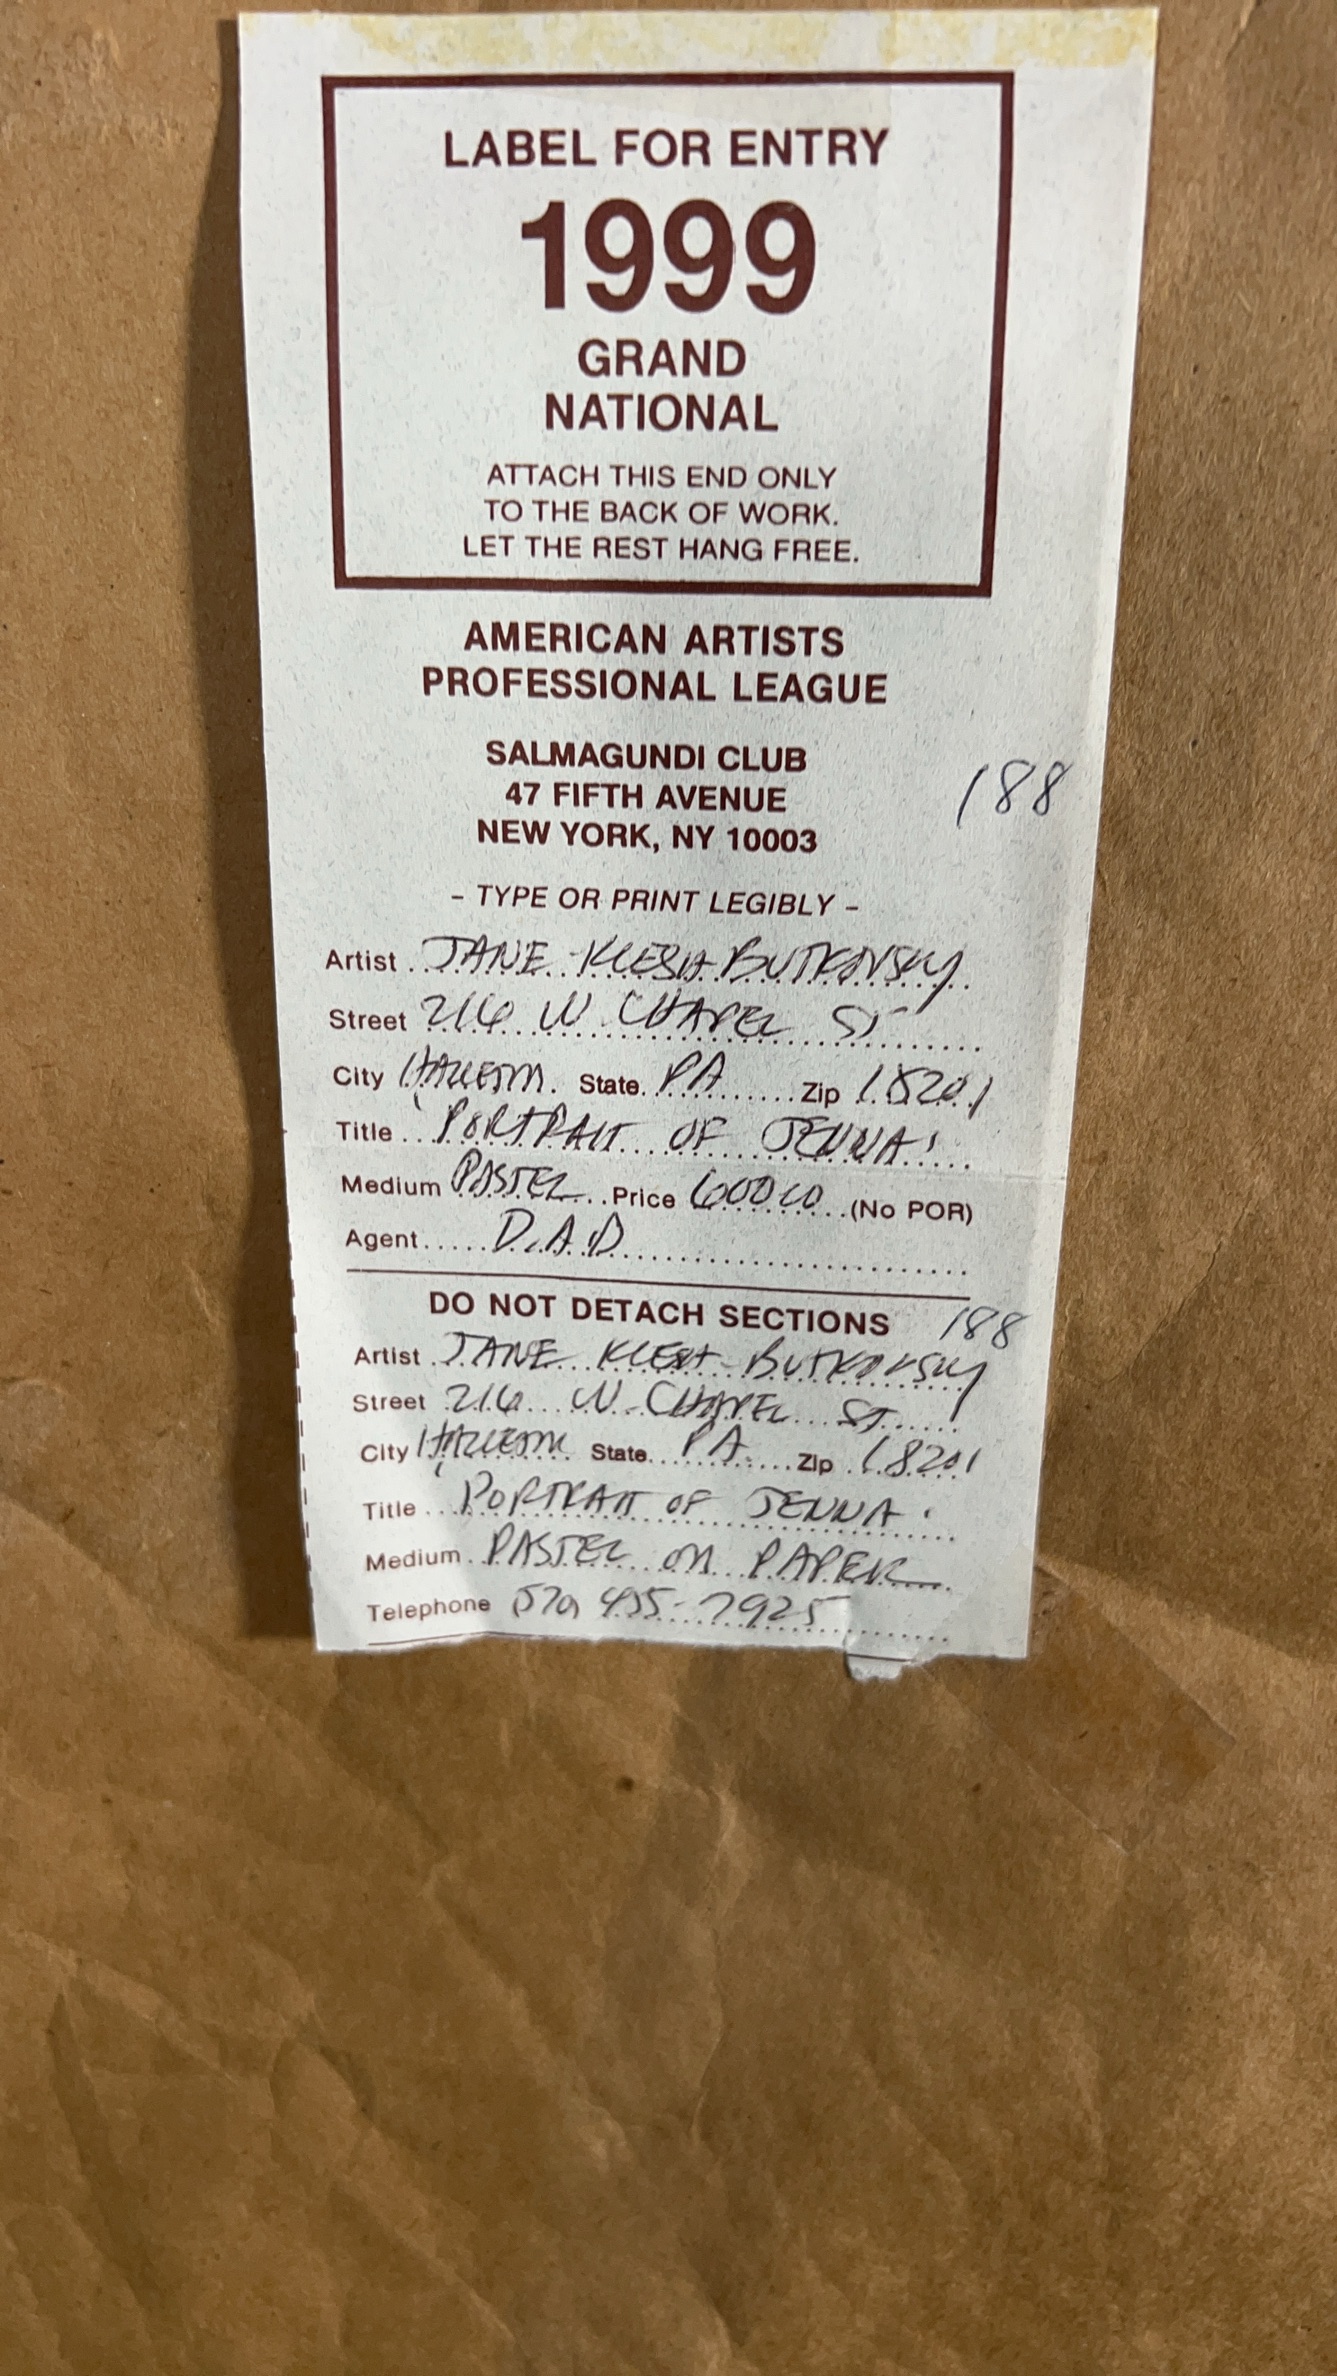 LABEL FOR ENTRY
1999
GRAND
NATIONAL
ATTACH THIS END ONLY
TO THE BACK OF WORK.
LET THE REST HANG FREE.
AMERICAN ARTISTS
PROFESSIONAL LEAGUE
SALMAGUNDI CLUB
47 FIFTH AVENUE
NEW YORK, NY 10003
188
- TYPE OR PRINT LEGIBLY -
Artist JANE KLESH-BUTKOVSKY
Street 216 W CHAPEL ST
City State PA Zip 18201
Title 'PORTRAIT OF JENNA'
Medium PASTEL Price 600 00 (No POR)
Agent D.A.D
DO NOT DETACH SECTIONS 188
Artist JANE KLESH-BUTKOVSKY
Street 216 W CHAPEL ST
City State PA Zip 18201
Title 'PORTRAIT OF JENNA'
Medium PASTEL ON PAPER
Telephone (570) 455-7925